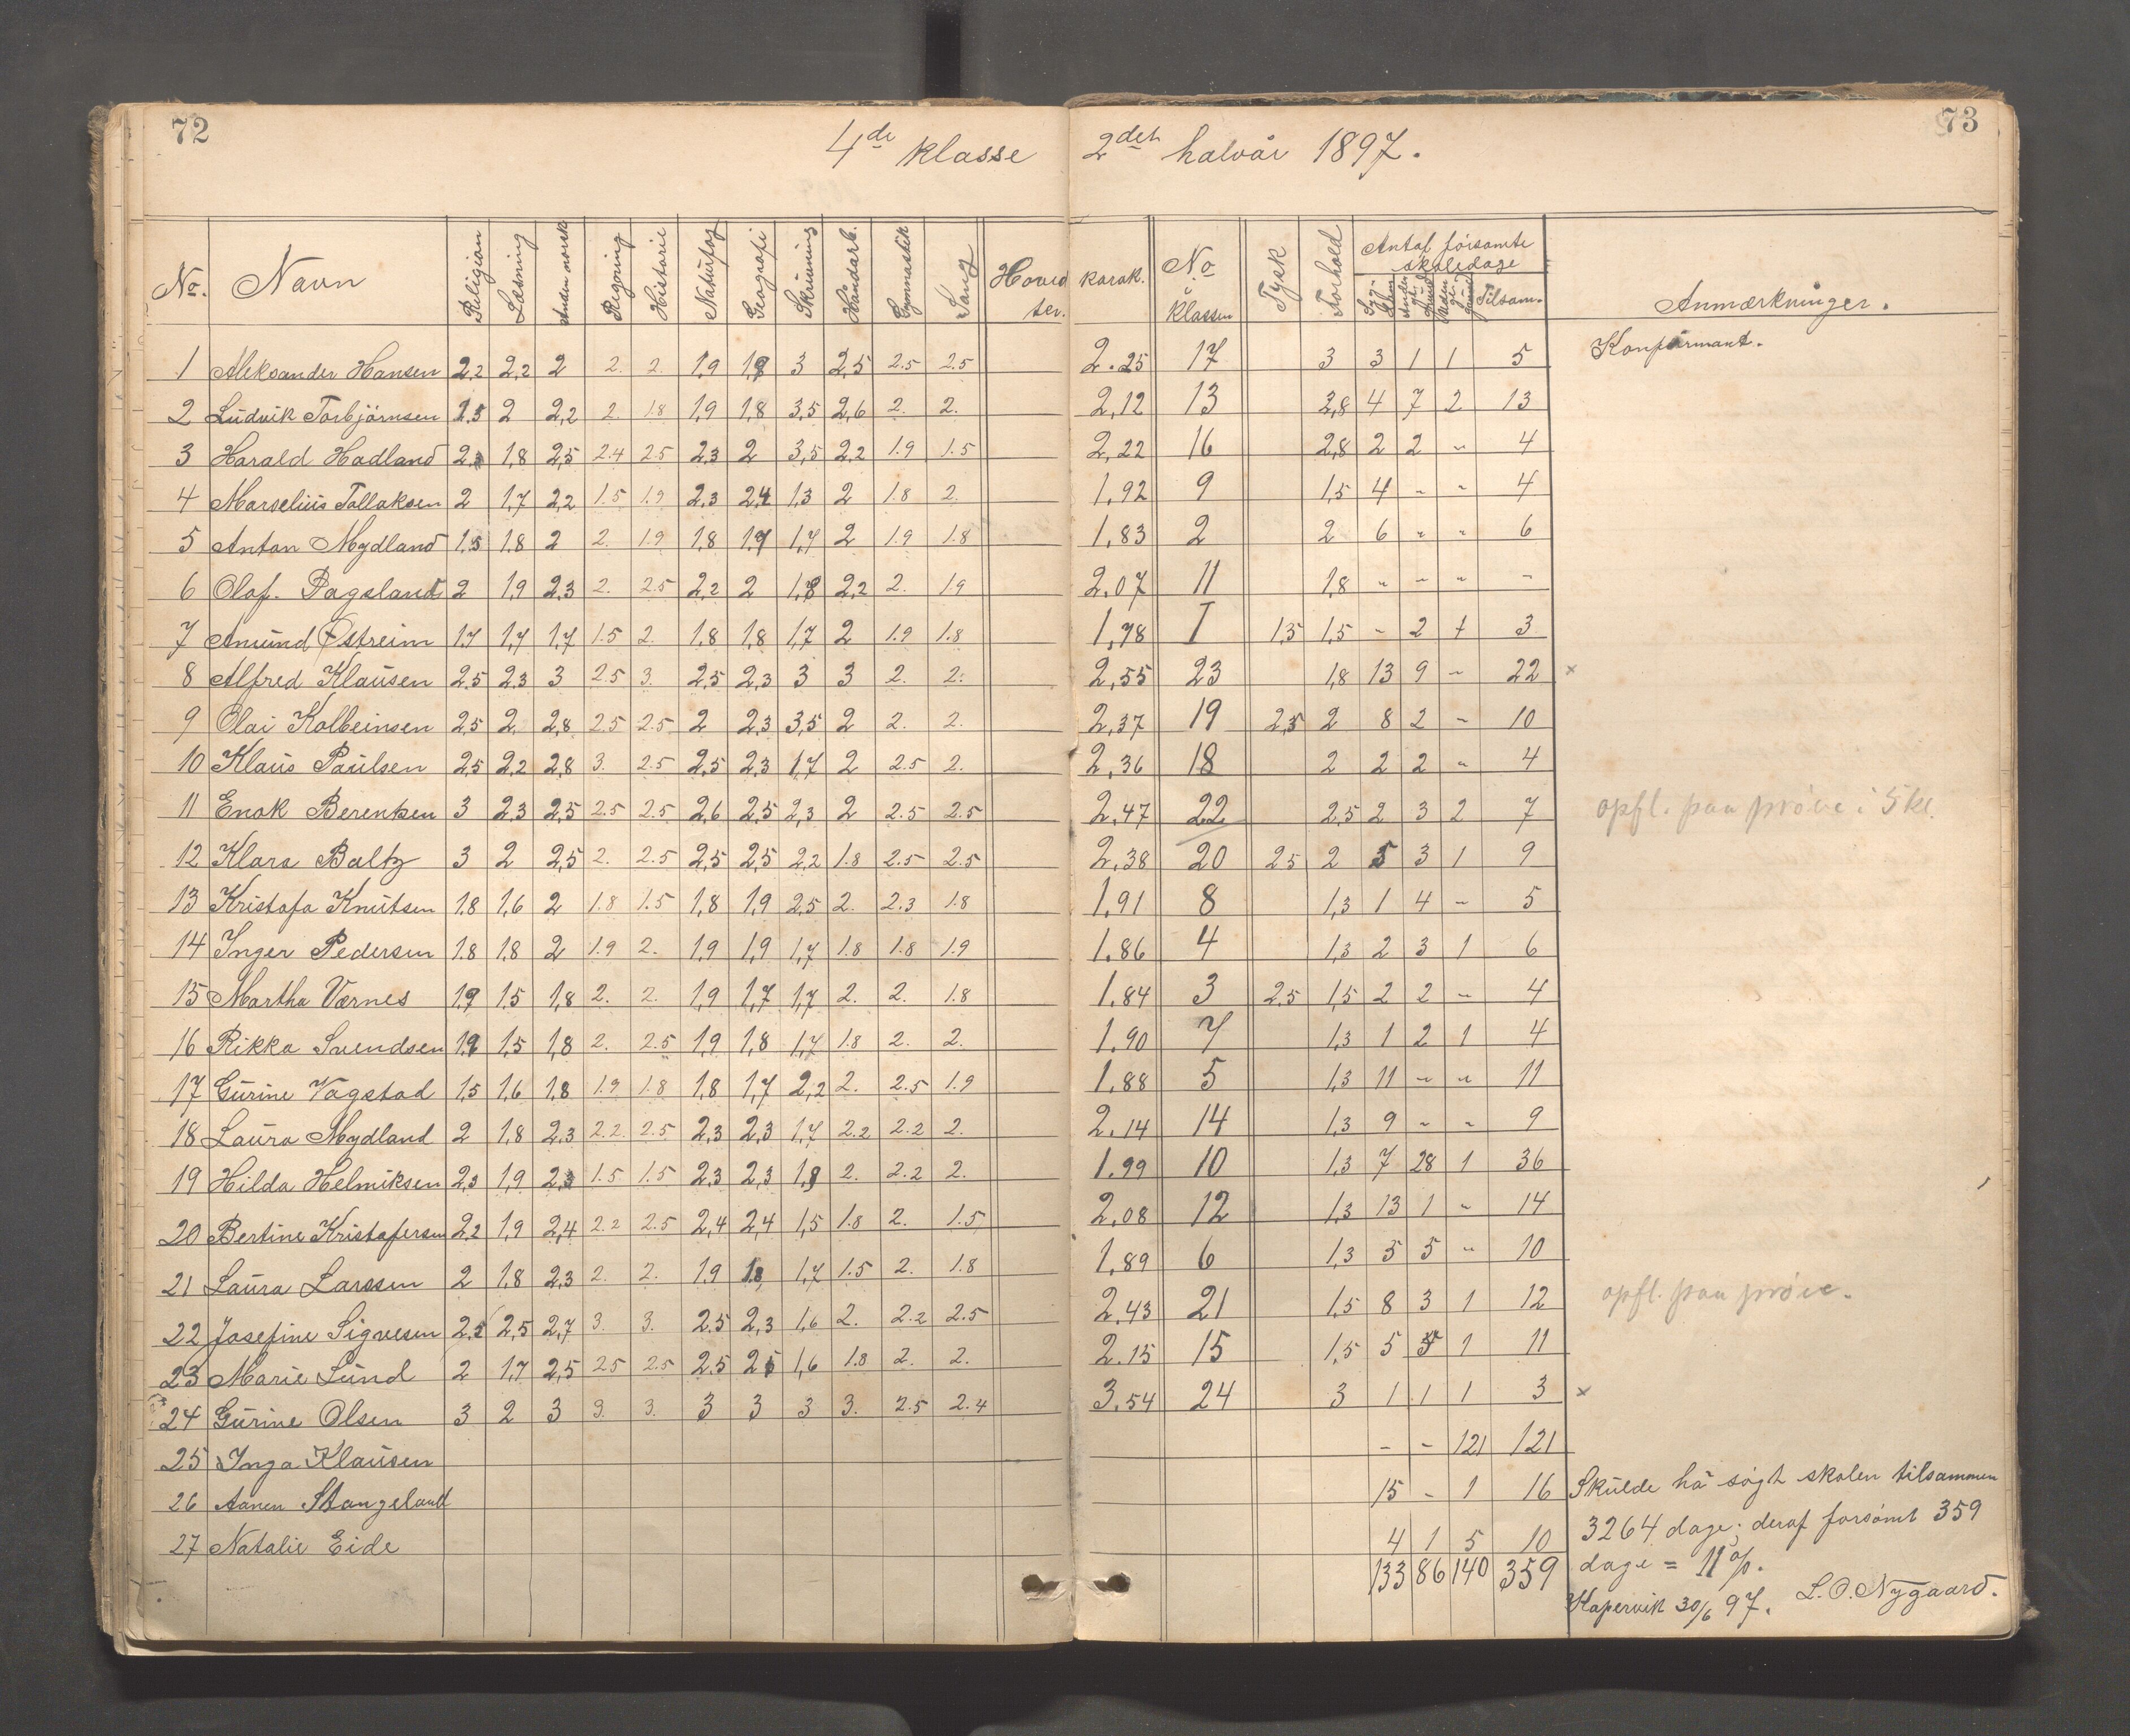 72
73
4de klasse 2det halvår 1897.
No. Navn Religion Læsning Anden norsk Regning Historie Naturfag Geografi Skrivning Håndarb. Gymnastik Sang Hovedkarakter. No i klassen Tysk Forhold Antal forsømte skoledage Sygdom Anden gy. grund Uden gy. grund Tilsam. Anmærkninger.
1 Aleksander Hansen 2,2 2,2 2 2. 2. 1,9 1,9 3 2,5 2.5 2.5 2.25 17 3 3 1 1 5 Konfirmant.
2 Ludvik Torbjörnsen 2,5 2 2,2 2. 1.8 1,9 1,8 3,5 2,6 2. 2. 2,12 13 2,8 4 7 2 13
3 Harald Hadland 2,3 1,8 2,5 2.4 2.5 2,3 2 3,5 2,2 1.9 1.5 2,22 16 2,8 2 2 - 4
4 Marselius Tallaksen 2 1,7 2,2 1.5 1.9 2,3 2,4 1,3 2 1.8 2. 1,92 9 1,5 4 - - 4
5 Anton Mydland 1,5 1,8 2 2. 1.9 1,8 1,7 1,7 2 1.9 1.8 1,83 2 2 6 - - 6
6 Olaf. Dagsland 2 1,9 2,3 2. 2.5 2,2 2 1,8 2,2 2. 1.9 2.07 11 1,8 - - - -
7 Amund Østreim 1,7 1,7 1,7 1.5 2. 1,8 1,8 1,7 2 1.9 1.8 1,78 I 1,5 1,5 - 2 1 3
8 Alfred Klausen 2,5 2,3 3 2.5 3. 2,5 2,3 3 3 2. 2. 2,55 23 1,8 13 9 - 22 x
9 Olai Kolbeinsen 2,5 2. 2,8 2.5 2.5 2 2,3 3,5 2 2. 2. 2,37 19 2,5 2 8 2 - 10
10 Klaus Paulsen 2,5 2,2 2,8 3. 2.5 2,5 2,3 1,7 2 2.5 2. 2,36 18 2 2 2 - 4
11 Enok Berentsen 3 2,3 2,5 2.5 2.5 2,6 2,5 2,3 2 2.5 2.5 2,47 22 2,5 2 3 2 7 opfl. paa prøve i 5 kl.
12 Klara Baltz 3 2 2,5 2. 2.5 2,5 2,5 2,2 1.8 2.5 2.5 2,38 20 2,5 2 5 3 1 9
13 Kristofa Knutsen 1,8 1,6 2 1.8 1.5 1,8 1,9 2,5 2. 2.3 1.8 1.91 8 1,3 1 4 - 5
14 Inger Pedersen 1.8 1,8 2 1.9 2. 1,9 1,9 1,7 1.8 1.8 1.9 1.86 4 1,3 2 3 1 6
15 Martha Værnes 1,9 1,5 1,8 2. 2. 1,9 1,7 1,7 2. 2. 1.8 1.84 3 2,5 1,5 2 2 - 4
16 Rikka Svendsen 1,9 1,5 1,8 2. 2.5 1,9 1,8 1,7 1.8 2. 2. 1.90 7 1,3 1 2 1 4
17 Gurine Vagstad 1,5 1,6 1,8 1.9 1.8 1,8 1,7 2,2 2. 2.5 1.9 1.88 5 1,3 11 - - 11
18 Laura Mydland 2 1,8 2,3 2.2 2.5 2,3 2,3 1,7 2.2 2.2 2. 2.14 14 1,3 9 - - 9
19 Hilda Helmiksen 2,3 1,9 2,3 1.5 1.5 2,3 2,3 1,9 2. 2.2 2. 1.99 10 1,3 7 28 1 36
20 Bertine Kristofersen 2,2 1,9 2,4 2.2 2.5 2,4 2,4 1,5 1.8 2. 1.5 2,08 12 1,3 13 1 - 14
21 Laura Larssen 2 1,8 2,3 2. 2. 1,9 1,8 1,7 1.5 2. 1.8 1,89 6 1,3 5 5 - 10
22 Josefine Sigvesen 2,5 2,5 2,7 3. 3. 2,5 2,3 1,6 2. 2.2 2.5 2.43 21 1,5 8 3 1 12 opfl. paa prøve.
23 Marie Lund 2 1,7 2,5 2.5 2.5 2,5 2,5 1,6 1.8 2. 2. 2.15 15 1,5 5 5 1 11
24 Gurine Olsen 3 2 3 3. 3. 3 3 3 3. 2.5 2.4 3.54 24 3 1 1 1 3 x
25 Inga Klausen - - 121 121
26 Aanen Stangeland 15 - 1 16 Skulde ha søgt skolen tilsammen
27 Natalie Eide 4 1 5 10 3264 dage; deraf forsømt 359
133 86 140 359 dage = 11 %.
Kopervik 30/6 97. L. O. Nygaard.